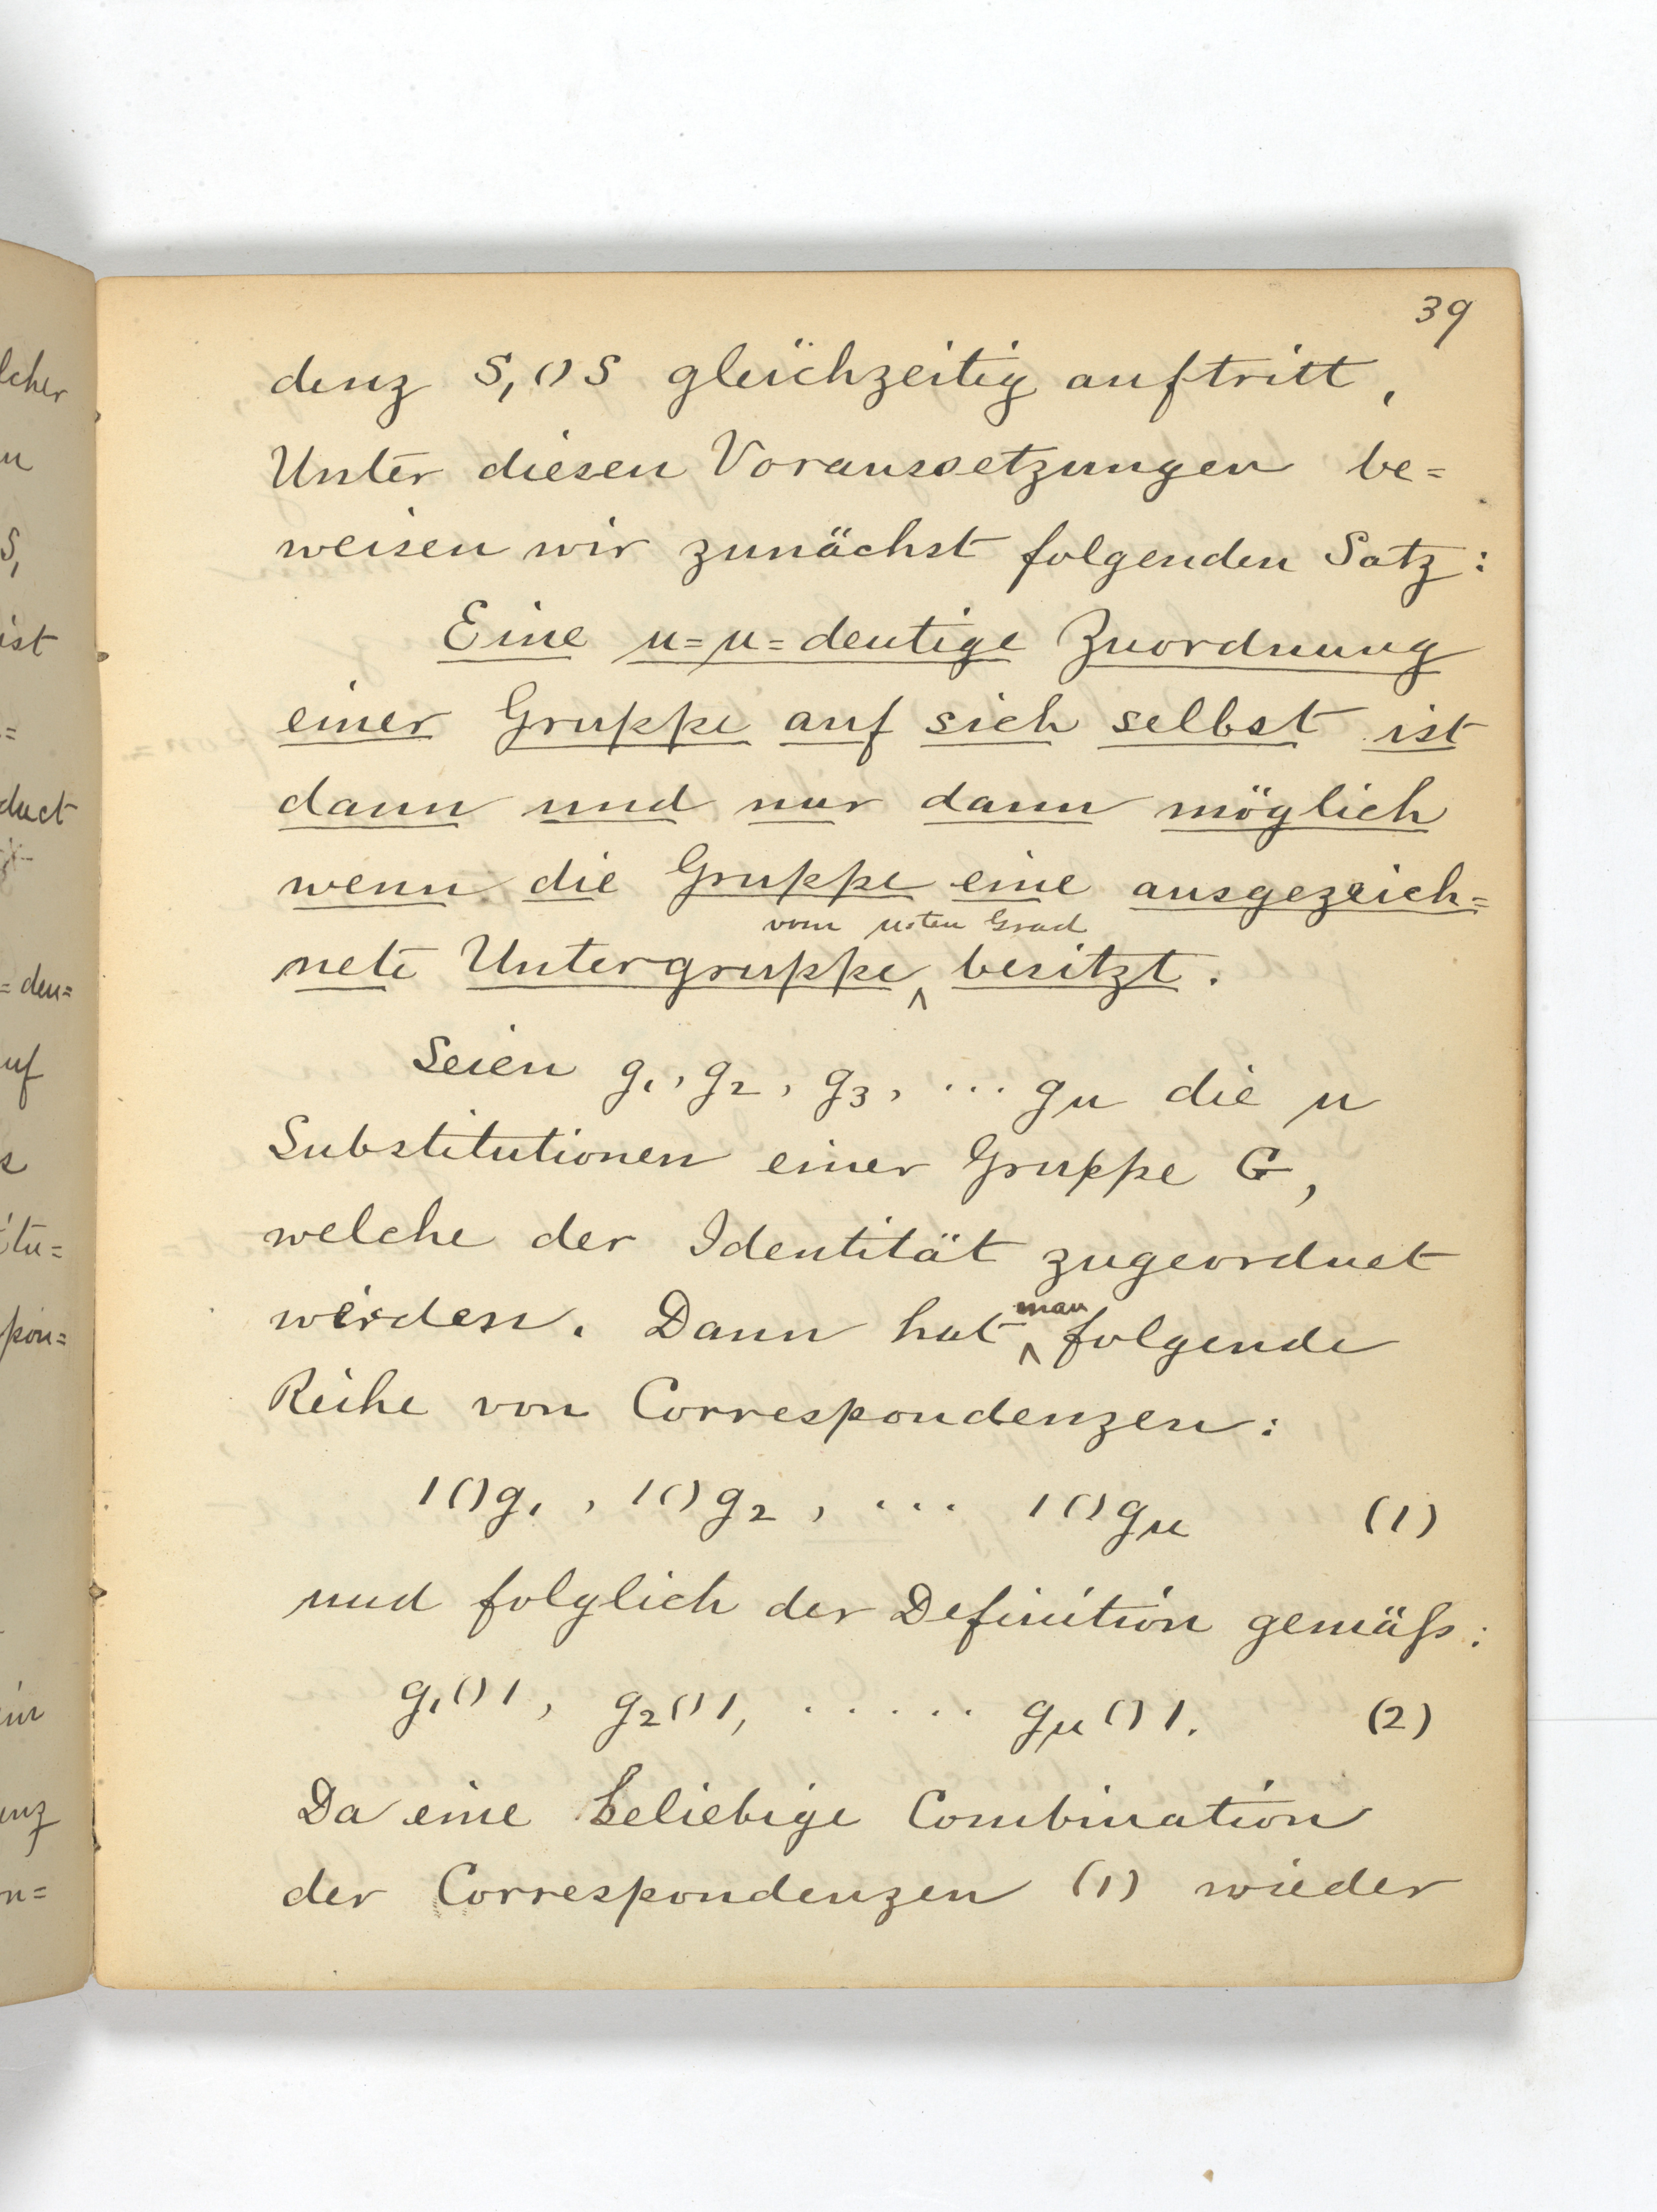 39
denz S₁()S gleichzeitig auftritt,
Unter diesen Voraussetzungen be=
weisen wir zunächst folgenden Satz:
Eine n=n=deutige Zuordnung
einer Gruppe auf sich selbst ist
dann und nur dann möglich
wenn die Gruppe eine ausgezeich=
vom nten Grad
nete Untergruppe besitzt.
Seien g₁, g₂, g₃, ... gn die n
Substitutionen einer Gruppe G,
welche der Identität zugeordnet
werden. Dann hat man folgende
Reihe von Correspondenzen:
1()g₁, 1()g₂, ... 1()gn (1)
und folglich der Definition gemäß:
g₁()1, g₂()1, ..... gn()1. (2)
Da eine beliebige Combination
der Correspondenzen (1) wieder
lcher
n
S,
ist
=
duct
= deu=
uf
s
itu=
pon=
enz
n=